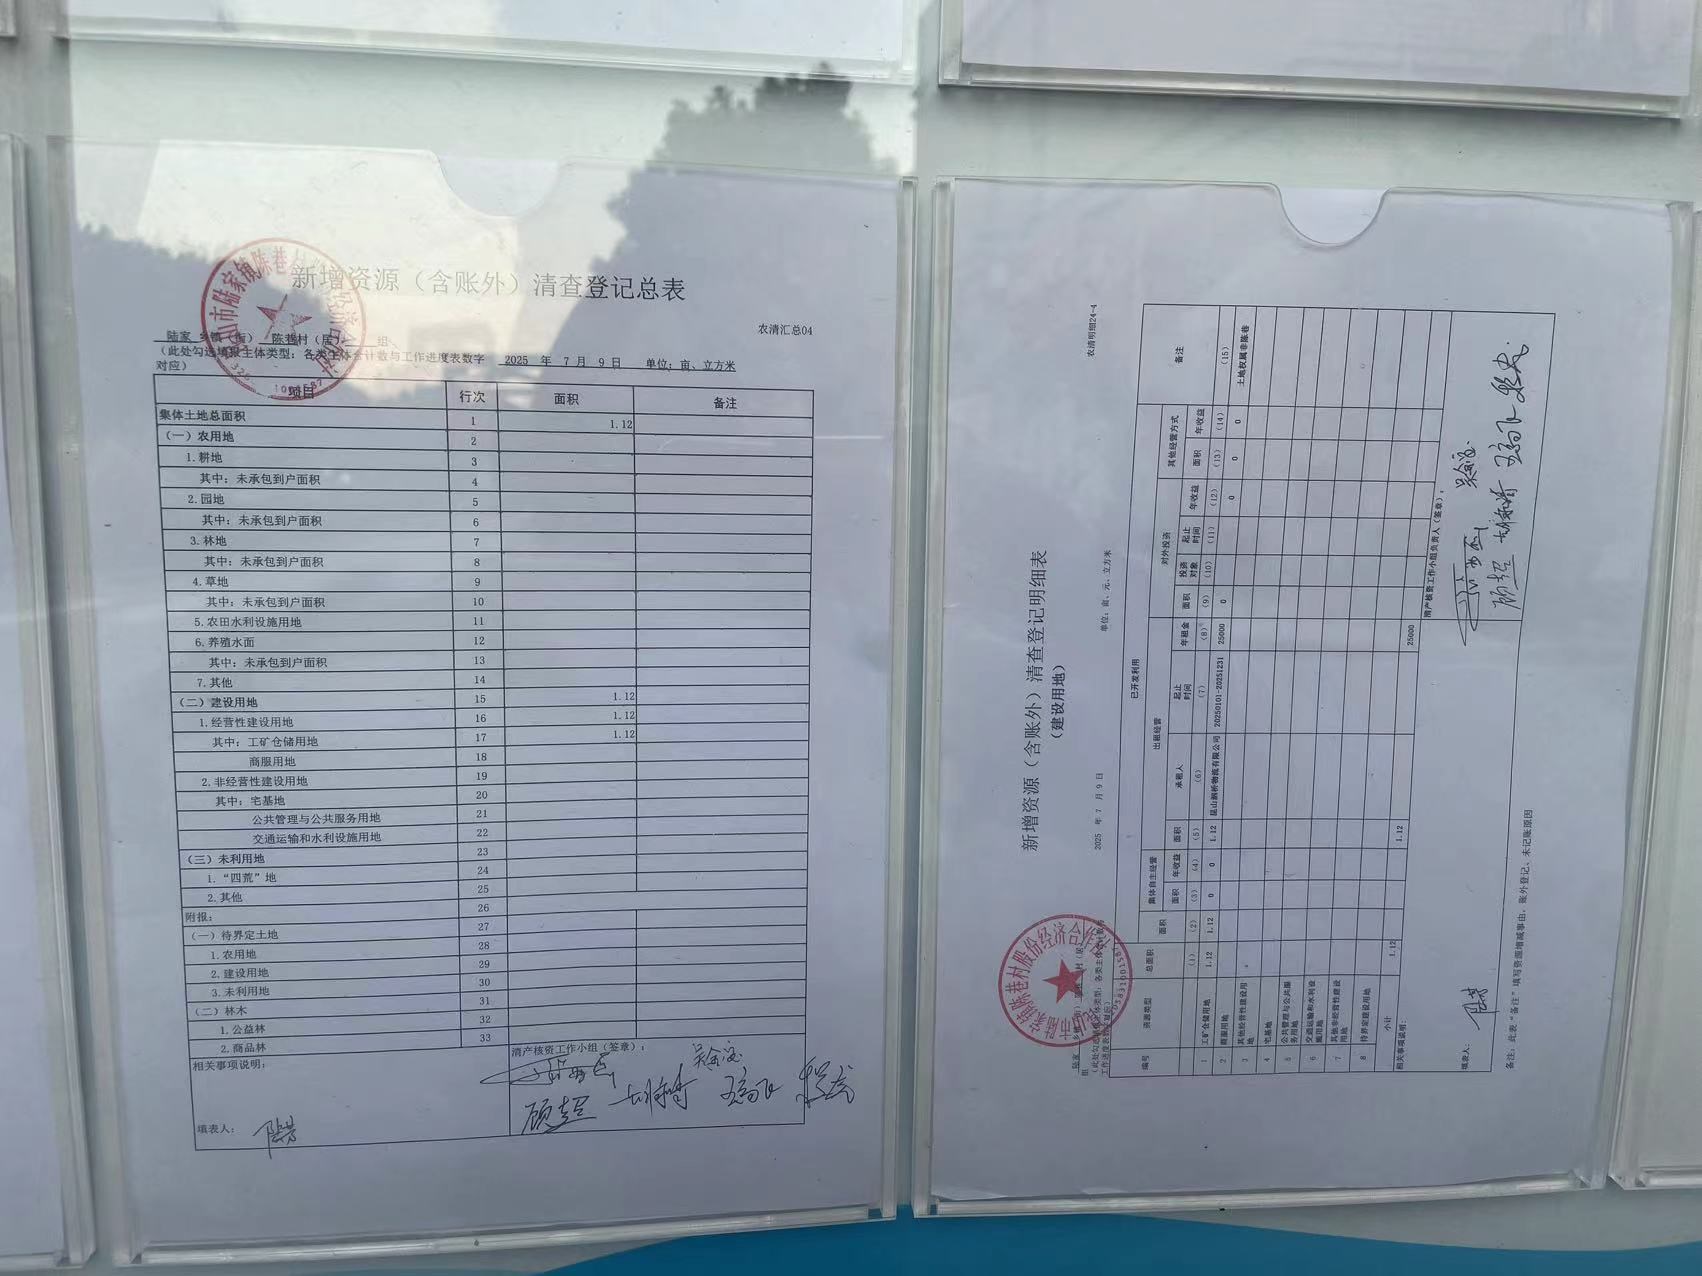 新增资源（含账外）清查登记总表
农清汇总04
陆家 乡镇（街） 陈巷村（居） 组
（此处勾选填报主体类型：各类主体合计数与工作进度表数字对应） 2025 年 7 月 9 日 单位：亩、立方米
项目 行次 面积 备注
集体土地总面积 1 1.12
（一）农用地 2
1.耕地 3
其中：未承包到户面积 4
2.园地 5
其中：未承包到户面积 6
3.林地 7
其中：未承包到户面积 8
4.草地 9
其中：未承包到户面积 10
5.农田水利设施用地 11
6.养殖水面 12
其中：未承包到户面积 13
7.其他 14
（二）建设用地 15 1.12
1.经营性建设用地 16 1.12
其中：工矿仓储用地 17 1.12
商服用地 18
2.非经营性建设用地 19
其中：宅基地 20
公共管理与公共服务用地 21
交通运输和水利设施用地 22
（三）未利用地 23
1.“四荒”地 24
2.其他 25
附报： 26
（一）待界定土地 27
1.农用地 28
2.建设用地 29
3.未利用地 30
（二）林木 31
1.公益林 32
2.商品林 33
相关事项说明：
清产核资工作小组（签章）：
顾超
填表人：
新增资源（含账外）清查登记明细表
（建设用地）
农清明细24-4
2025 年 7 月 9 日 单位：亩、元、立方米
编号 资源类型 总面积 已开发利用 备注
面积 集体自主经营 出租经营 对外投资 其他经营方式
面积 年收益 面积 承租人 起止时间 年租金 面积 投资对象 起止时间 年收益 面积 年收益
(1) (2) (3) (4) (5) (6) (7) (8) (9) (10) (11) (12) (13) (14) (15)
1 工矿仓储用地 1.12 1.12 0 0 1.12 20250101-20251231 25000 0 0 0 0 土地权属非陈巷
2 商服用地
3 其他经营性建设用地
4 宅基地
5 公共管理与公共服务用地
6 交通运输和水利设施用地
7 其他非经营性建设用地
8 待界定建设用地
小计 1.12 1.12 25000
相关事项说明：
清产核资工作小组负责人（签章）：
顾超
填表人：
备注：此表“备注”填写资源增减事由，账外登记、未记账原因